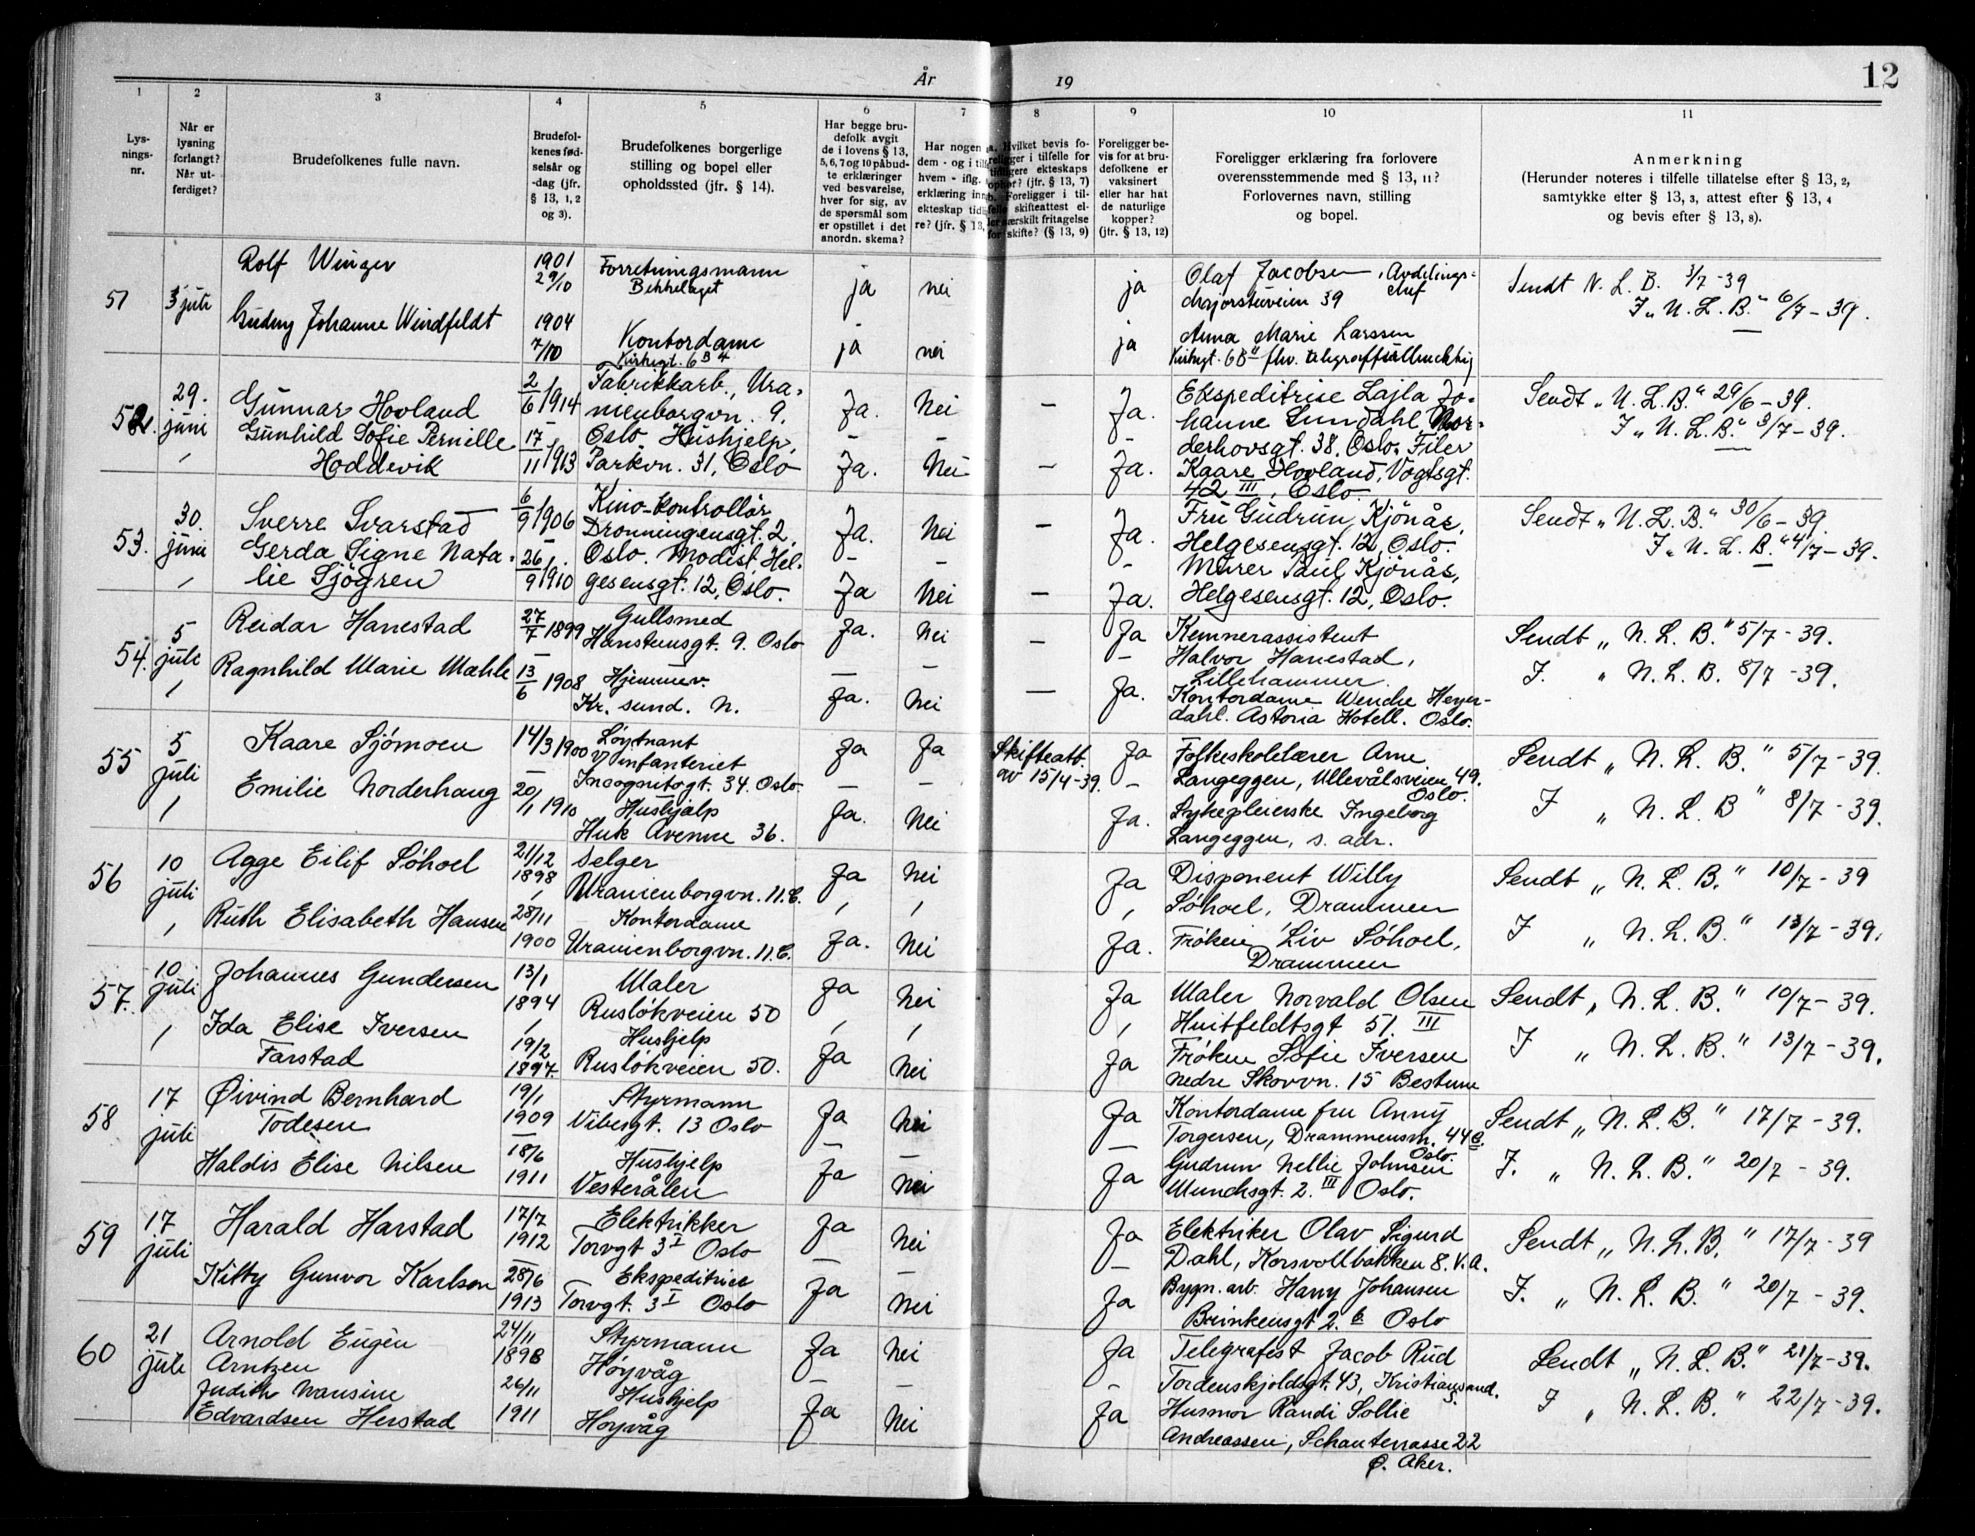 År 19
12
1 2 3 4 5 6 7 8 9 10 11
Lys-
nings-
nr.
Når er
lysning
forlangt?
Når ut-
ferdiget?
Brudefolkenes fulle navn.
Brudefol-
kenes fød-
selsår og
-dag (jfr.
§ 13, 1, 2
og 3).
Brudefolkenes borgerlige
stilling og bopel eller
opholdssted (jfr. § 14).
Har begge bru-
defolk avgit
de i lovens § 13,
5, 6, 7 og 10 påbud-
te erklæringer
ved besvarelse,
hver for sig, av
de spørsmål som
er opstillet i det
anordn. skema?
Har nogen
dem - og i til
hvem - iflg.
erklæring inn
ekteskap tid
re? (jfr. § 13,
Hvilket bevis fo-
religger i tilfelle for
tidligere ekteskaps
ophør? (jfr. § 13, 7)
b. Foreligger i til-
felle skifteattest el-
ler særskilt fritagelse
for skifte? (§ 13, 9)
Foreligger be-
vis for at bru-
defolkene er
vaksinert
eller har hat
de naturlige
kopper?
(jfr. § 13, 12)
Foreligger erklæring fra forlovere
overensstemmende med § 13, 11?
Forlovernes navn, stilling
og bopel.
Anmerkning
(Herunder noteres i tilfelle tillatelse efter § 13, 2,
samtykke efter § 13, 3, attest efter § 13, 4
og bevis efter § 13, 8).
51 3 juli
Rolf Winger
1901
29/10
Forretningsmann
Bekkelaget
ja nei ja
Olaf Jacobsen, Avdelings-
chef
Majorstuveien 39
Sendt N. L. B. 3/7-39
I „N. L. B." 6/7-39.
Gudny Johanne Windfeldt
1904
7/10
Kontordame
Kirkegt. 6B 4
ja nei ja
Anna Marie Larssen
52. 29. juni
Gunnar Hovland
2/6 1914
Fabrikkarb., Ura-
nienborgvn. 9,
Oslo.
Ja. Nei - Ja.
Ekspeditrise Lajla Jo-
hanne Sundahl, Nor-
derhovsgt. 38, Oslo.
Sendt „N. L. B." 29/6-39.
I „N. L. B." 3/7-39.
Gunhild Sofie Pernille
Hoddevik
17/11 1913
Hushjelp,
Parkvn. 31, Oslo
Ja. Nei - Ja.
Filer
Kaare Hovland, Vogtsgt.
42 III, Oslo.
53. 30. juni
Sverre Svarstad
6/9 1906
Kino-kontrollør
Dronningensgt. 2,
Oslo.
Ja. Nei - Ja.
Fru Gudrun Kjönås,
Helgesensgt. 12, Oslo.
Sendt „N. L. B." 30/6-39.
I „N. L. B." 4/7-39.
Gerda Signe Nata-
lie Sjögren
26/9 1910
Modist, Hel-
gesensgt. 12, Oslo.
Ja Nei - Ja.
Murer Paul Kjönås,
Helgesensgt. 12, Oslo.
54. 5 juli
Reidar Hanestad
27/7 1899
Gullsmed
Hansteensgt. 9. Oslo
Ja. Nei - Ja
Kemnerassistent
Halvor Hanestad,
Lillehammer.
Sendt „N. L. B." 5/7-39.
I. „N. L. B. 8/7-39.
Ragnhild Marie Mæhle
13/6 1908
Hjemmev.
Kr. sund. N.
Ja. Nei - Ja.
Kontordame Wenche Heyer-
dahl. Astoria Hotell. Oslo.
55 5 juli
Kaare Sjømoen
14/3 1900
Løytnant
V/infanteriet
Incognitogt. 34. Oslo.
Ja Ja
Skifteatt.
av 15/4-39.
Ja
Folkeskolelærer Arne
Langeggen, Ullevålsveien 49.
Oslo.
Sendt „N. L. B." 5/7-39.
I „N. L. B" 8/7-39.
Emilie Norderhaug
20/11 1910
Hushjelp
Huk Avenue 36.
Ja. Nei Ja.
Sykepleierske Ingeborg
Langeggen, s. adr.
56 10 juli
Agge Eilif Søhoel
21/12
1898
Selger
Uranienborgvn. 11.C.
Ja Nei Ja
Disponent Willy
Søhoel, Drammen
Sendt „N. L. B." 10/7-39
I „N. L. B." 13/7-39.
Ruth Elisabeth Hansen
28/11
1900
Kontordame
Uranienborgvn. 11.C.
Ja. Nei Ja.
Frøken Liv Søhoel,
Drammen
57. 10 juli
Johannes Gundersen
13/1
1894
Maler
Rusløkveien 50
Ja Nei Ja
Maler Norvald Olsen
Huitfeldtsgt 51. III
Sendt „N. L. B." 10/7-39.
I „N. L. B." 13/7-39.
Ida Elise Iversen
Farstad
19/2
1897.
Hushjelp
Rusløkveien 50.
Ja Nei Ja
Frøken Sofie Iversen
nedre Skovvn. 15 Bestum
58 17 juli
Øivind Bernhard
Todesen
19/1
1909
Styrmann
Vibesgt. 13 Oslo
Ja Nei Ja
Kontordame fru Anny
Torgersen, Drammensvn. 44C.
Oslo.
Sendt „N. L. B." 17/7-39.
I. „N. L. B." 20/7-39.
Haldis Elise Nilsen
18/6
1911
Hushjelp
Vesterålen
Ja Nei Ja
Gudrun Nellie Johnsen
Munchsgt. 2. III Oslo.
59 17 juli
Harald Harstad
17/7
1912
Elektrikker
Torvgt 3 I Oslo
Ja Nei Ja
Elektriker Olav Sigurd
Dahl, Korsvollbakken 8. V.A.
Sendt „N. L. B." 17/7-39
I. „N. L. B." 20/7-39.
Kitty Gunvor Karlson
28/6
1913
Ekspeditrice
Torvgt. 3 I Oslo
Ja Nei Ja
Bygn. arb. Harry Johansen
Brinkensgt 2. Oslo
60 21 juli
Arnold Eugén
Arntzen
24/11
1898
Styrmann
Høyvåg
Ja Nei Ja
Telegrafist Jacob Rud
Tordenskjoldsgt. 43, Kristiansand.
S.
Sendt „N. L. B." 21/7-39.
I „N. L. B." 22/7-39.
Judith Nansine
Edvardsen Herstad
26/11
1911
Hushjelp
Høyvåg
Ja Nei Ja
Husmor Randi Sollie
Andreassen, Schauterrasse 22
Ø. Aker.